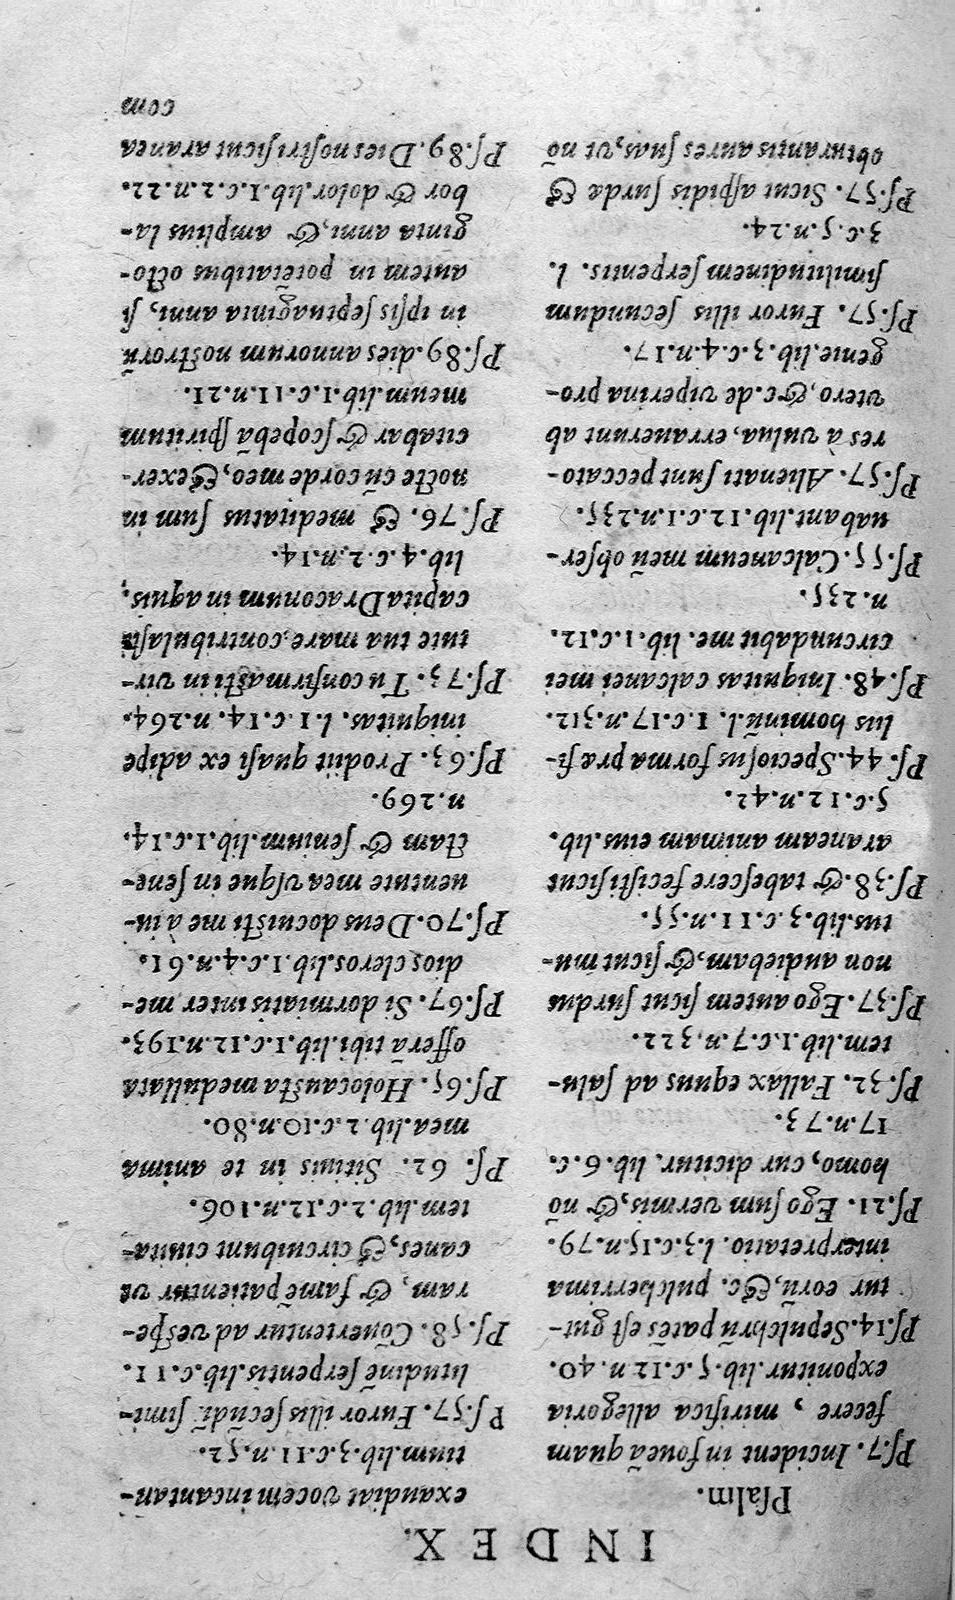 INDEX.
Pſalm.
Pſ.7. Incident in foueã quam
fecere, mirifica allegoria
exponitur.lib.5.c.12 n.40.
Pſ.14. Sepulchrũ patẽs eſt gut-
tur eorũ,&c. pulcherrima
interpretatio. l.3.c.15.n.79.
Pſ.21. Ego ſum vermis,& nõ
homo, cur dicitur. lib.6.c.
17.n.73.
Pſ.32. Fallax equus ad ſalu-
tem.lib.1.c.7.n.322.
Pſ.37. Ego autem ſicut ſurdus
non audiebam,& ſicut mu-
tus.lib.3.c.11.n.55.
Pſ.38.& tabeſcere feciſti ſicut
araneam animam eius.lib.
5.c.12.n.42.
Pſ.44. Specioſus forma præ fi-
lijs hominũ.l.1.c.17.n.312.
Pſ.48. Iniquitas calcanei mei
circundabit me.lib.1.c.12.
n.235.
Pſ.55. Calcaneum meũ obſer-
uabant.lib.12.c.1.n.235.
Pſ.57. Alienati ſunt peccato-
res à vulua, errauerunt ab
vtero,&c.de viperina pro-
genie.lib.3.c.4.n.17.
Pſ.57. Furor illis ſecundum
ſimilitudinem ſerpentis. l.
3.c.5.n.24.
Pſ.57. Sicut aſpidis ſurdæ &
obturantis aures ſuas,vt nõ
exaudiat vocem incantan-
tium.lib.3.c.11.n.52.
Pſ.57. Furor illis ſecũdũ ſimi-
litudinẽ ſerpentis.lib.c.11.
Pſ.58. Cõuertentur ad veſpe-
ram, & famẽ patientur vt
canes,& circuibunt ciuita-
tem.lib.2.c.12.n.106.
Pſ. 62. Sitiuit in te anima
mea.lib.2.c.10.n.80.
Pſ.65. Holocauſta medullata
offerã tibi.lib.1.c.12.n.193.
Pſ.67. Si dormiatis inter me-
dios cleros.lib.1.c.4.n.61.
Pſ.70. Deus docuiſti me à iu-
uentute mea vſque in ſene-
ctam & ſenium.lib.1.c.14.
n.269.
Pſ.63. Prodijt quaſi ex adipe
iniquitas. l.1.c.14. n.264.
Pſ.73. Tu confirmaſti in vir-
tute tua mare,contribulaſti
capita Draconum in aquis.
lib.4.c.2.n.14.
Pſ.76. & meditatus ſum in
nocte cũ corde meo,& exer-
citabar & ſcopebã ſpiritum
meum.lib.1.c.11.n.21.
Pſ.89. dies annorum noſtrorũ
in ipſis ſeptuaginta anni, ſi
autem in potẽtatibus octo-
ginta anni,& amplius la-
bor & dolor.lib.1.c.2.n.22.
Pſ.89. Dies noſtri ſicut aranea
com